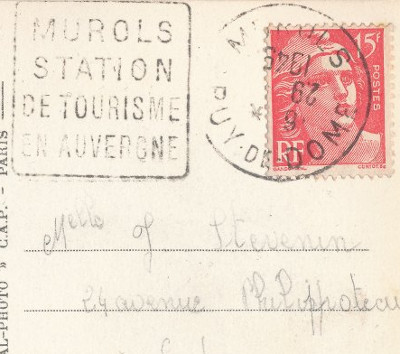 MUROLS
STATION
DE TOURISME
EN AUVERGNE
MUROLS
PUY-DE-DOME
29
1949
15F
POSTES
RF
GANDON
Melle J Stevenin
24 avenue Philippoteau
AL-PHOTO » C.A.P. - PARIS